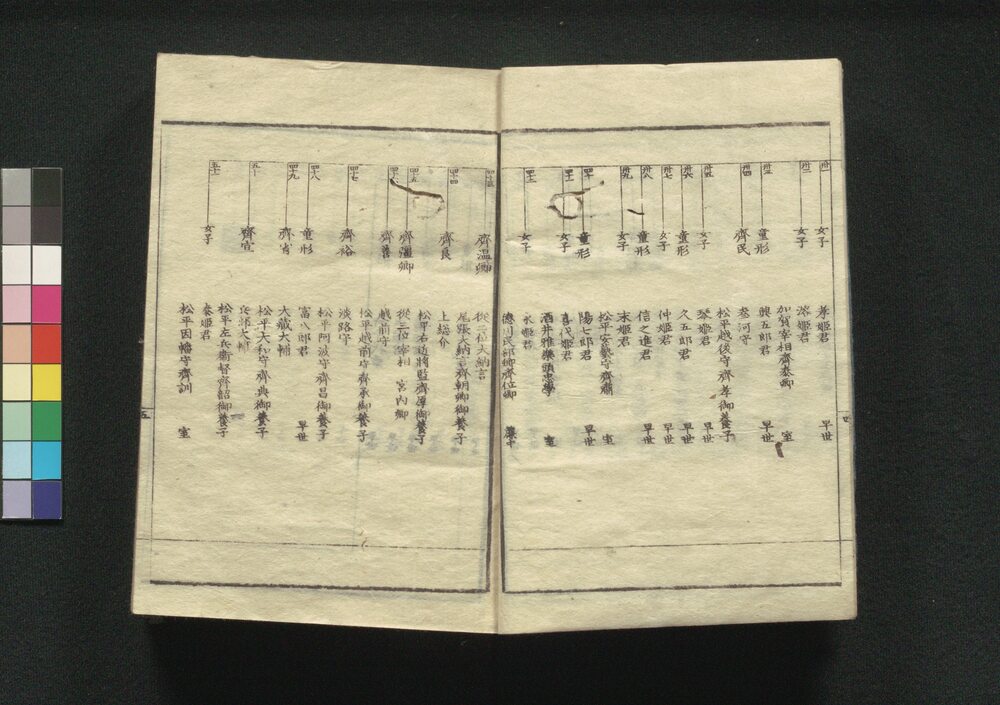 卅一
女子
孝姫君
早世
卅二
女子
溶姫君
加賀宰相齊泰卿
室
卅三
童形
興五郎君
卅四
齊民
巻河守
松平越後守齊孝御養子
卅五
女子
琴姫君
早世
卅六
童形
久五郎君
早世
卅七
女子
仲姫君
早世
卅八
童形
信之進君
早世
卅九
女子
末姫君
松平安藝守齊肅
室
四十
童形
陽七郎君
早世
四十一
女子
喜代姫君
酒井雅樂頭忠學
室
四十二
女子
永姫君
徳川民部卿齊位卿
簾中
四
四十三
齊温卿
從二位大納言
尾張大納言齊朝卿御養子
四十四
齊良
上総介
松平右近將監齊厚御養子
四十五
齊彊卿
從三位宰相 宮内卿
四十六
齊善
越前守
松平越前守齊承御養子
四十七
齊裕
淡路守
松平阿波守齊昌御養子
四十八
童形
富八郎君
早世
四十九
齊省
大藏大輔
松平大和守齊典御養子
五十
齊宣
兵部大輔
松平左兵衛督齊韶御養子
五十一
女子
泰姫君
松平因幡守齊訓
室
五